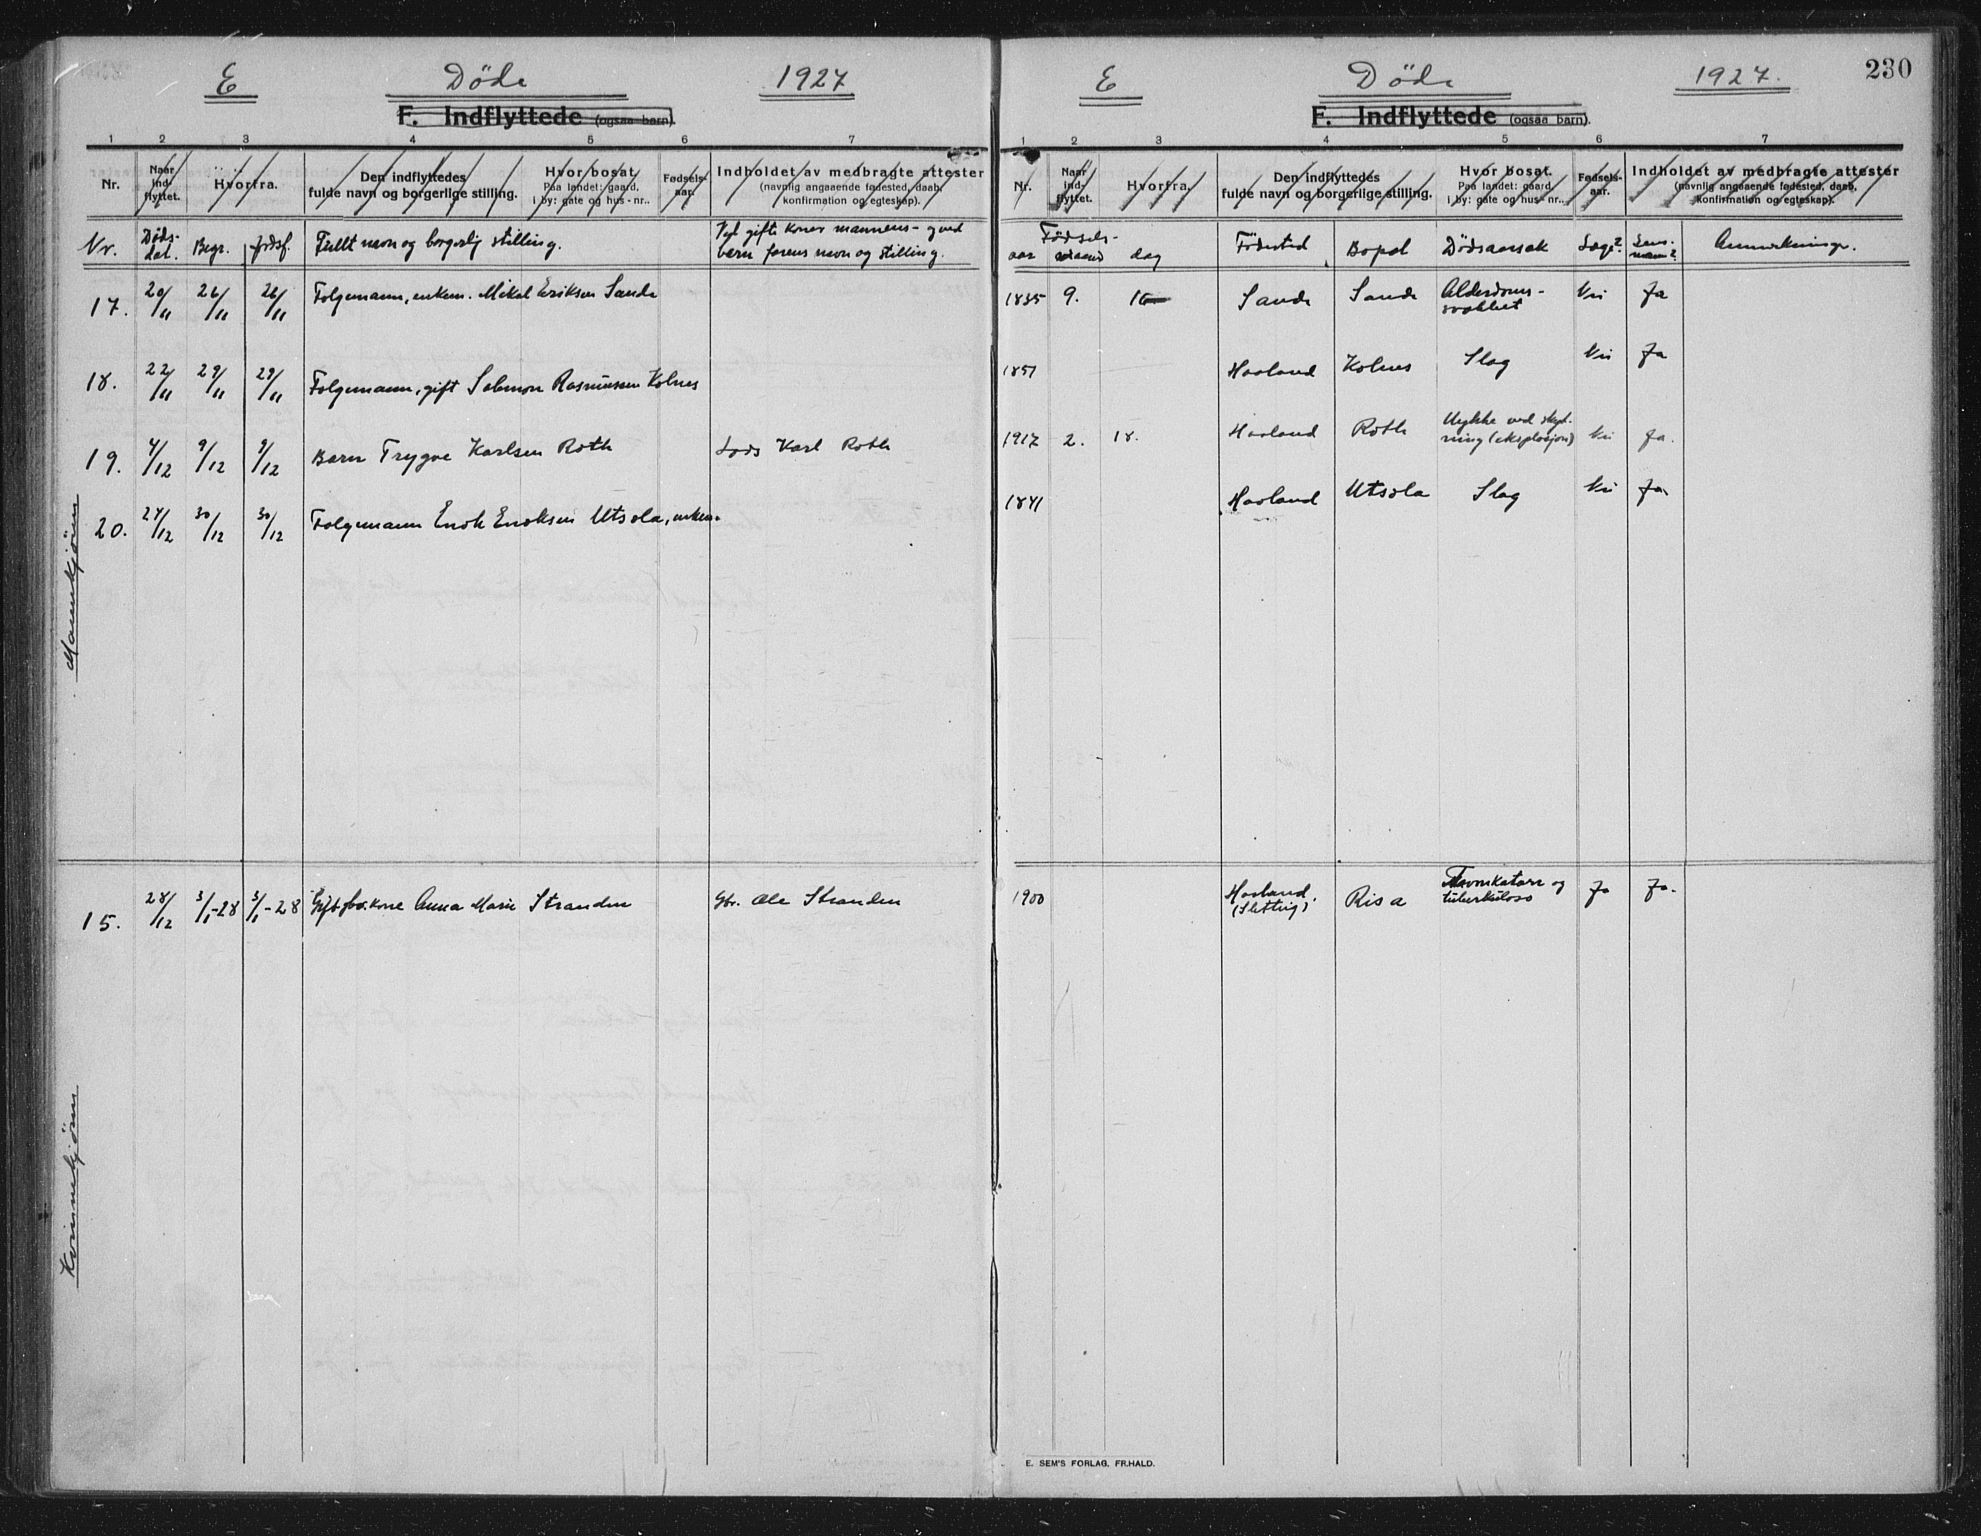 E Døde 1927
F. Indflyttede (ogsaa barn).
1 2 3 4 5 6 7
Nr. Naar ind-flyttet. Hvorfra. Den indflyttedes fulde navn og borgerlige stilling. Hvor bosat. Paa landet: gaard, i by: gate og hus-nr.. Fødsels-aar. Indholdet av medbragte attester (navnlig angaaende fødested, daab, konfirmation og egteskap).
Nr. Døds-dat. Begr. jrdsf. Fullt navn og borgerlig stilling. Ved gift koner mannens - og ved
barn farens navn og stilling.
17. 20/11 26/11 26/11 Folgemann, enkem. Mikal Eriksen Sande
18. 22/11 29/11 29/11 Folgemann, gift Salomon Rasmussen Kolnes
19. 4/12 9/12 9/12 Barn Trygve Karlsen Røth Lods Karl Røth
20. 24/12 30/12 30/12 Folgemann Enok Enoksen Utsola, enkem.
Mannskjønn
15. 28/12 3/1-28 3/1-28 kone Anna Marie Stranden Gbr. Ole Stranden
Kvinnekjønn
E Døde 1927. 230
F. Indflyttede (ogsaa barn).
1 2 3 4 5 6 7
Nr. Naar ind-flyttet. Hvorfra. Den indflyttedes fulde navn og borgerlige stilling. Hvor bosat. Paa landet: gaard, i by: gate og hus-nr.. Fødsels-aar. Indholdet av medbragte attester (navnlig angaaende fødested, daab, konfirmation og egteskap).
Fødsels-
aar dag Fødested Bopel Dødsaarsak Læge? Lens-mann? Anmerkninger.
1835 9. Sande Sande Alderdoms-
svakhet Nei Ja
1851 Haaland Kolnes Slag Nei Ja
1917 2. 18. Haaland Røth Ulykke ved skyd-
ning (eksplosjon) Nei Ja.
1841 Haaland Utsola Slag Nei Ja
1900 Haaland. Risa og
tuberkulose Ja Ja.
E. SEM'S FORLAG, FR.HALD.